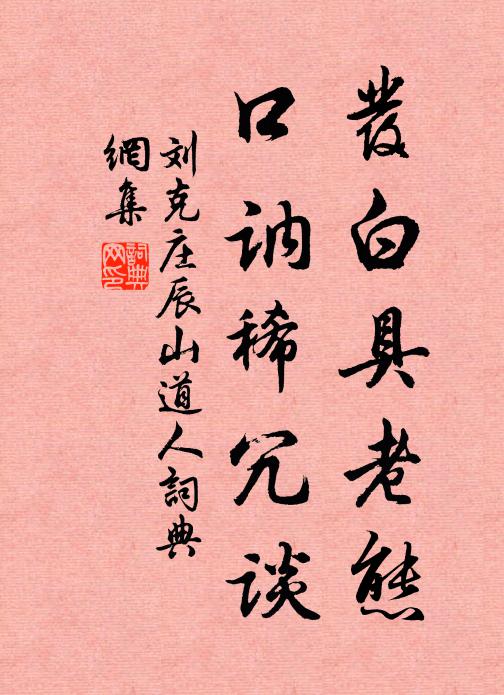 發白具老態
口訥稀冗談
刘克庄辰山道人詞典
網集
詞典網印